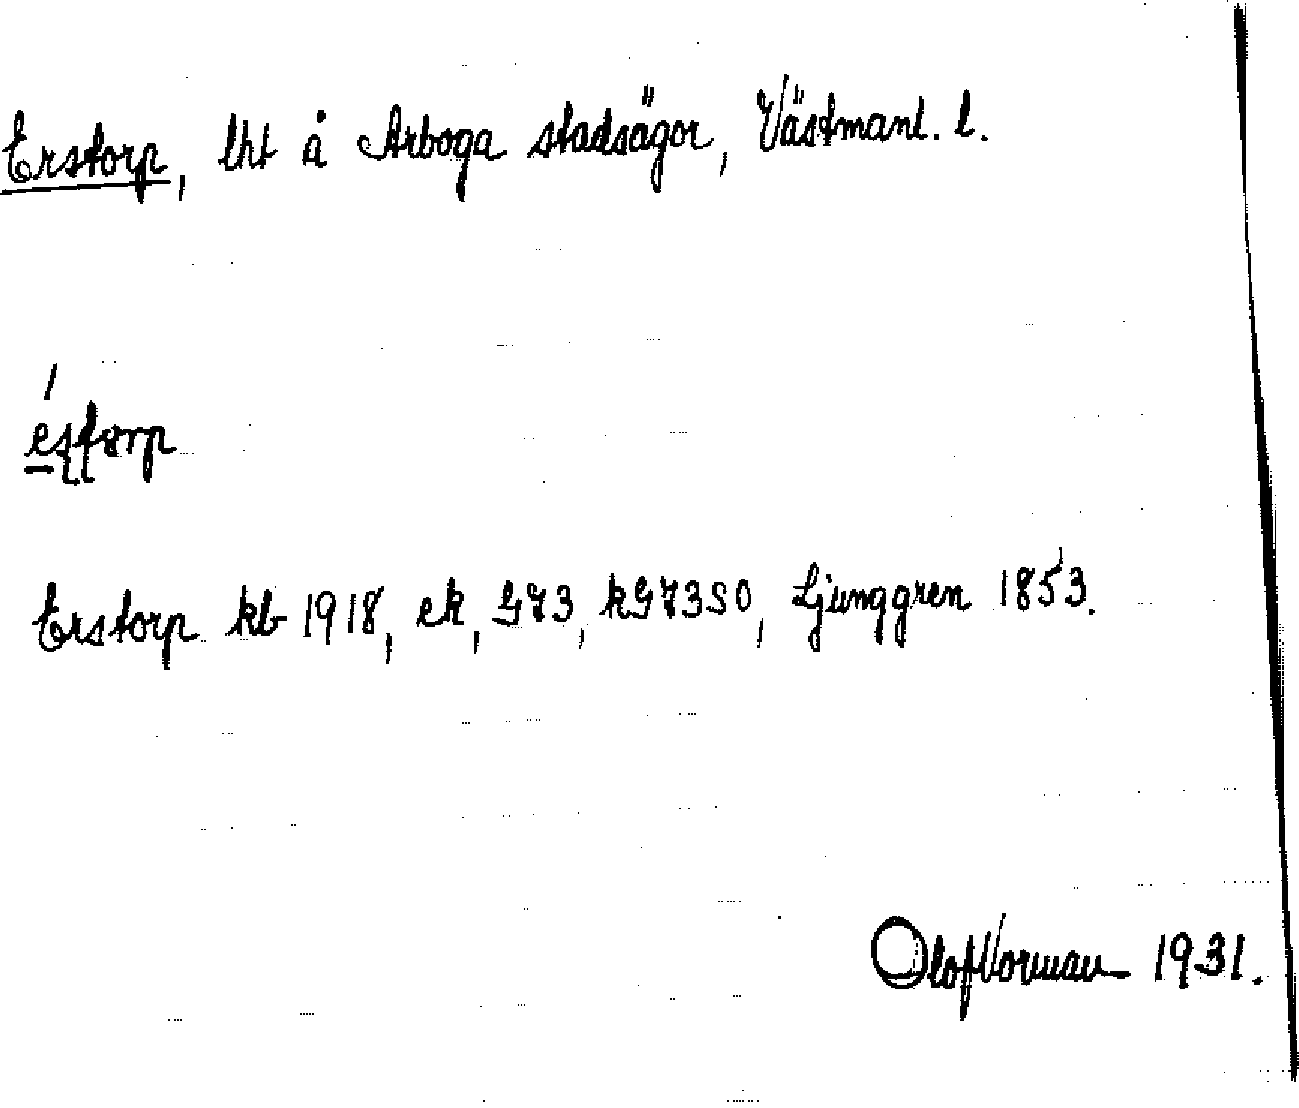 Erstorp, lht å Arboga stadsägor, Västmanl. l.
Erstorp kb 1918, ek, G73, kG73SO, Ljunggren 1853.
Olof Vorman 1931.